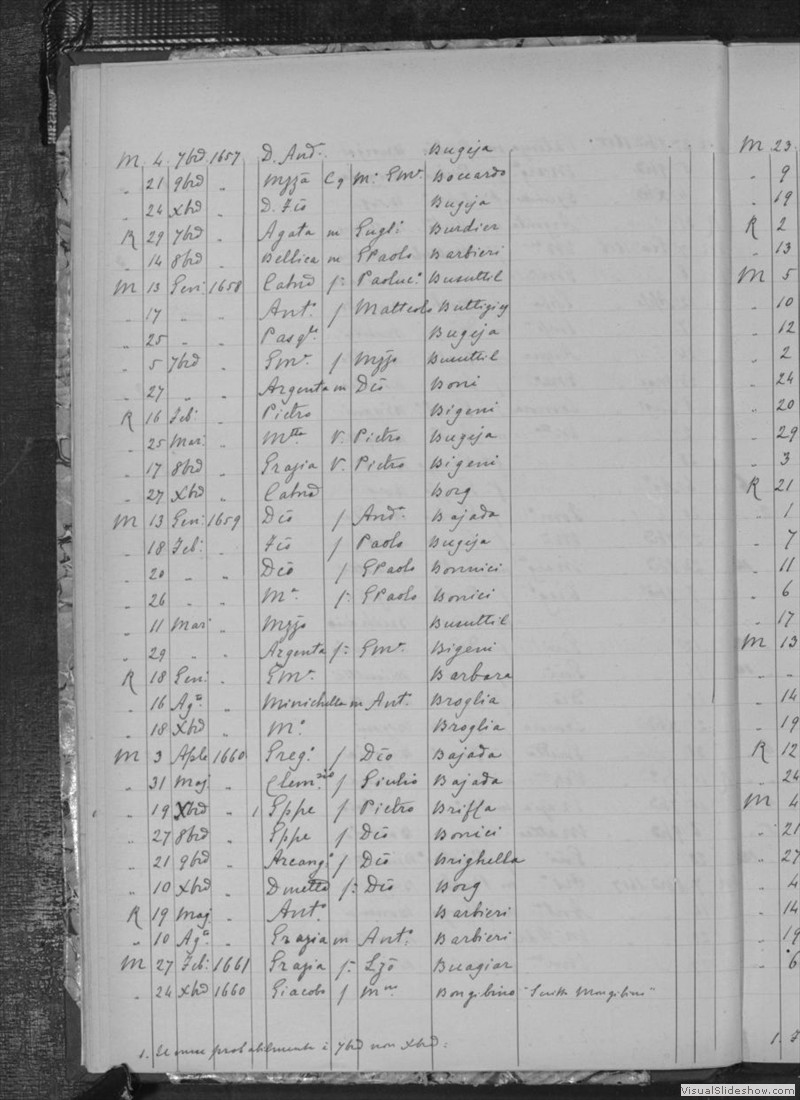 M 4 7brd 1657 D. And.ᵃ Bugeja
" 21 9brd " Mzzā Cg Mᵒ Gmʳ Boccardo
" 24 Xbrd " D. Fcō Bugeja
R 29 7brd " Agata m Gugli Burdier
" 14 8brd " Bellica m GPaolo Barbieri
M 13 Gen: 1658 Catnd f: Paoluc.ᵒ Busuttil
" 17 " " Ant.ᵒ f Matteolo Buttigieg
" 25 " Pasq.ˡᵉ Bugeja
" 5 7brd " Gmʳ f Mzzo Busuttil
" 27 " " Argenta m Dcō Boni
R 16 Feb: " Pietro Bigeni
" 25 Mar: " Mᵗᵗᵃ V. Pietro Bugeja
" 17 8brd " Grazia V. Pietro Bigeni
" 27 Xbrd " Catnd Borg
M 13 Gen: 1659 Dcō f And.ᵃ Bajada
" 18 Feb: " Fcō f Paolo Bugeja
" 20 " " Dcō f GPaolo Bonnici
" 26 " " Mᵃ f: GPaolo Bonici
" 11 Mar: " Mzzo Busuttil
" 29 " " Argenta f: Gmʳ Bigeni
R 18 Gen: " Gmʳ Barbara
" 16 Agᵒ " Minichella m Ant.ᵒ Broglia
" 18 Xbrd " Mᵒ Broglia
M 3 Aple 1660 Greg.ᵒ f Dcō Bajada
" 31 Maj " Clem. f Giulio Bajada
" 19 Xbrd " 1 Gppe f Pietro Briffa
" 27 8brd " Gppe f Dcō Bonici
" 21 9brd " Arcangᵒ f Dcō Brighella
" 10 Xbrd " Dmetto f: Dcō Borg
R 19 Maj " Ant.ᵒ Barbieri
" 10 Agᵒ " Grazia m Ant.ᵒ Barbieri
M 27 Feb: 1661 Grazia f: Lzō Buagiar
" 24 Xbrd 1660 Giacobo f Mᵐ Bongibino "Scritto Mongibino"
1. probabilmente è 7brd non Xbrd:
M 23
" 9
" 19
R 2
" 13
M 5
" 10
" 12
" 2
" 24
" 20
" 29
" 3
R 21
" 1
" 7
" 11
" 6
" 17
M 13
" "
" 14
" 19
R 12
" 24
M 4
" 21
" 27
" 4
" 14
" 19
" 6
1.
VisualSlideshow.com